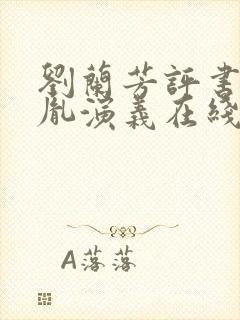 劉蘭芳評書
胤演義在綫
A落落